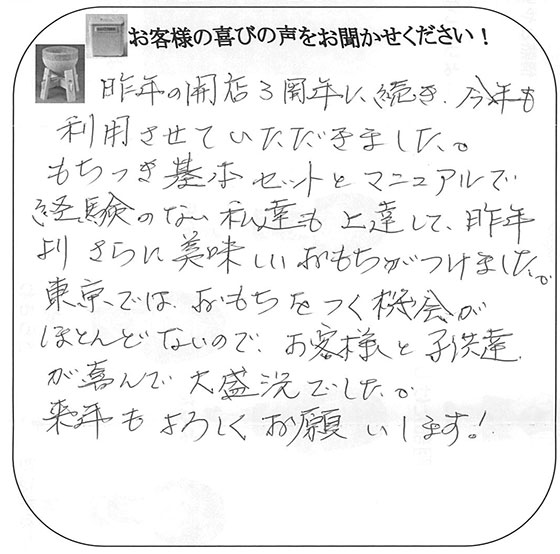 お客様の喜びの声をお聞かせください！
昨年の開店3周年に続き、今年も
利用させていただきました。
もちつき基本セットとマニュアルで
経験のない私達も上達して、昨年
よりさらに美味しいおもちがつけました。
東京では、おもちをつく機会が
ほとんどないので、お客様と子供達
が喜んで大盛況でした。
来年もよろしくお願いします！